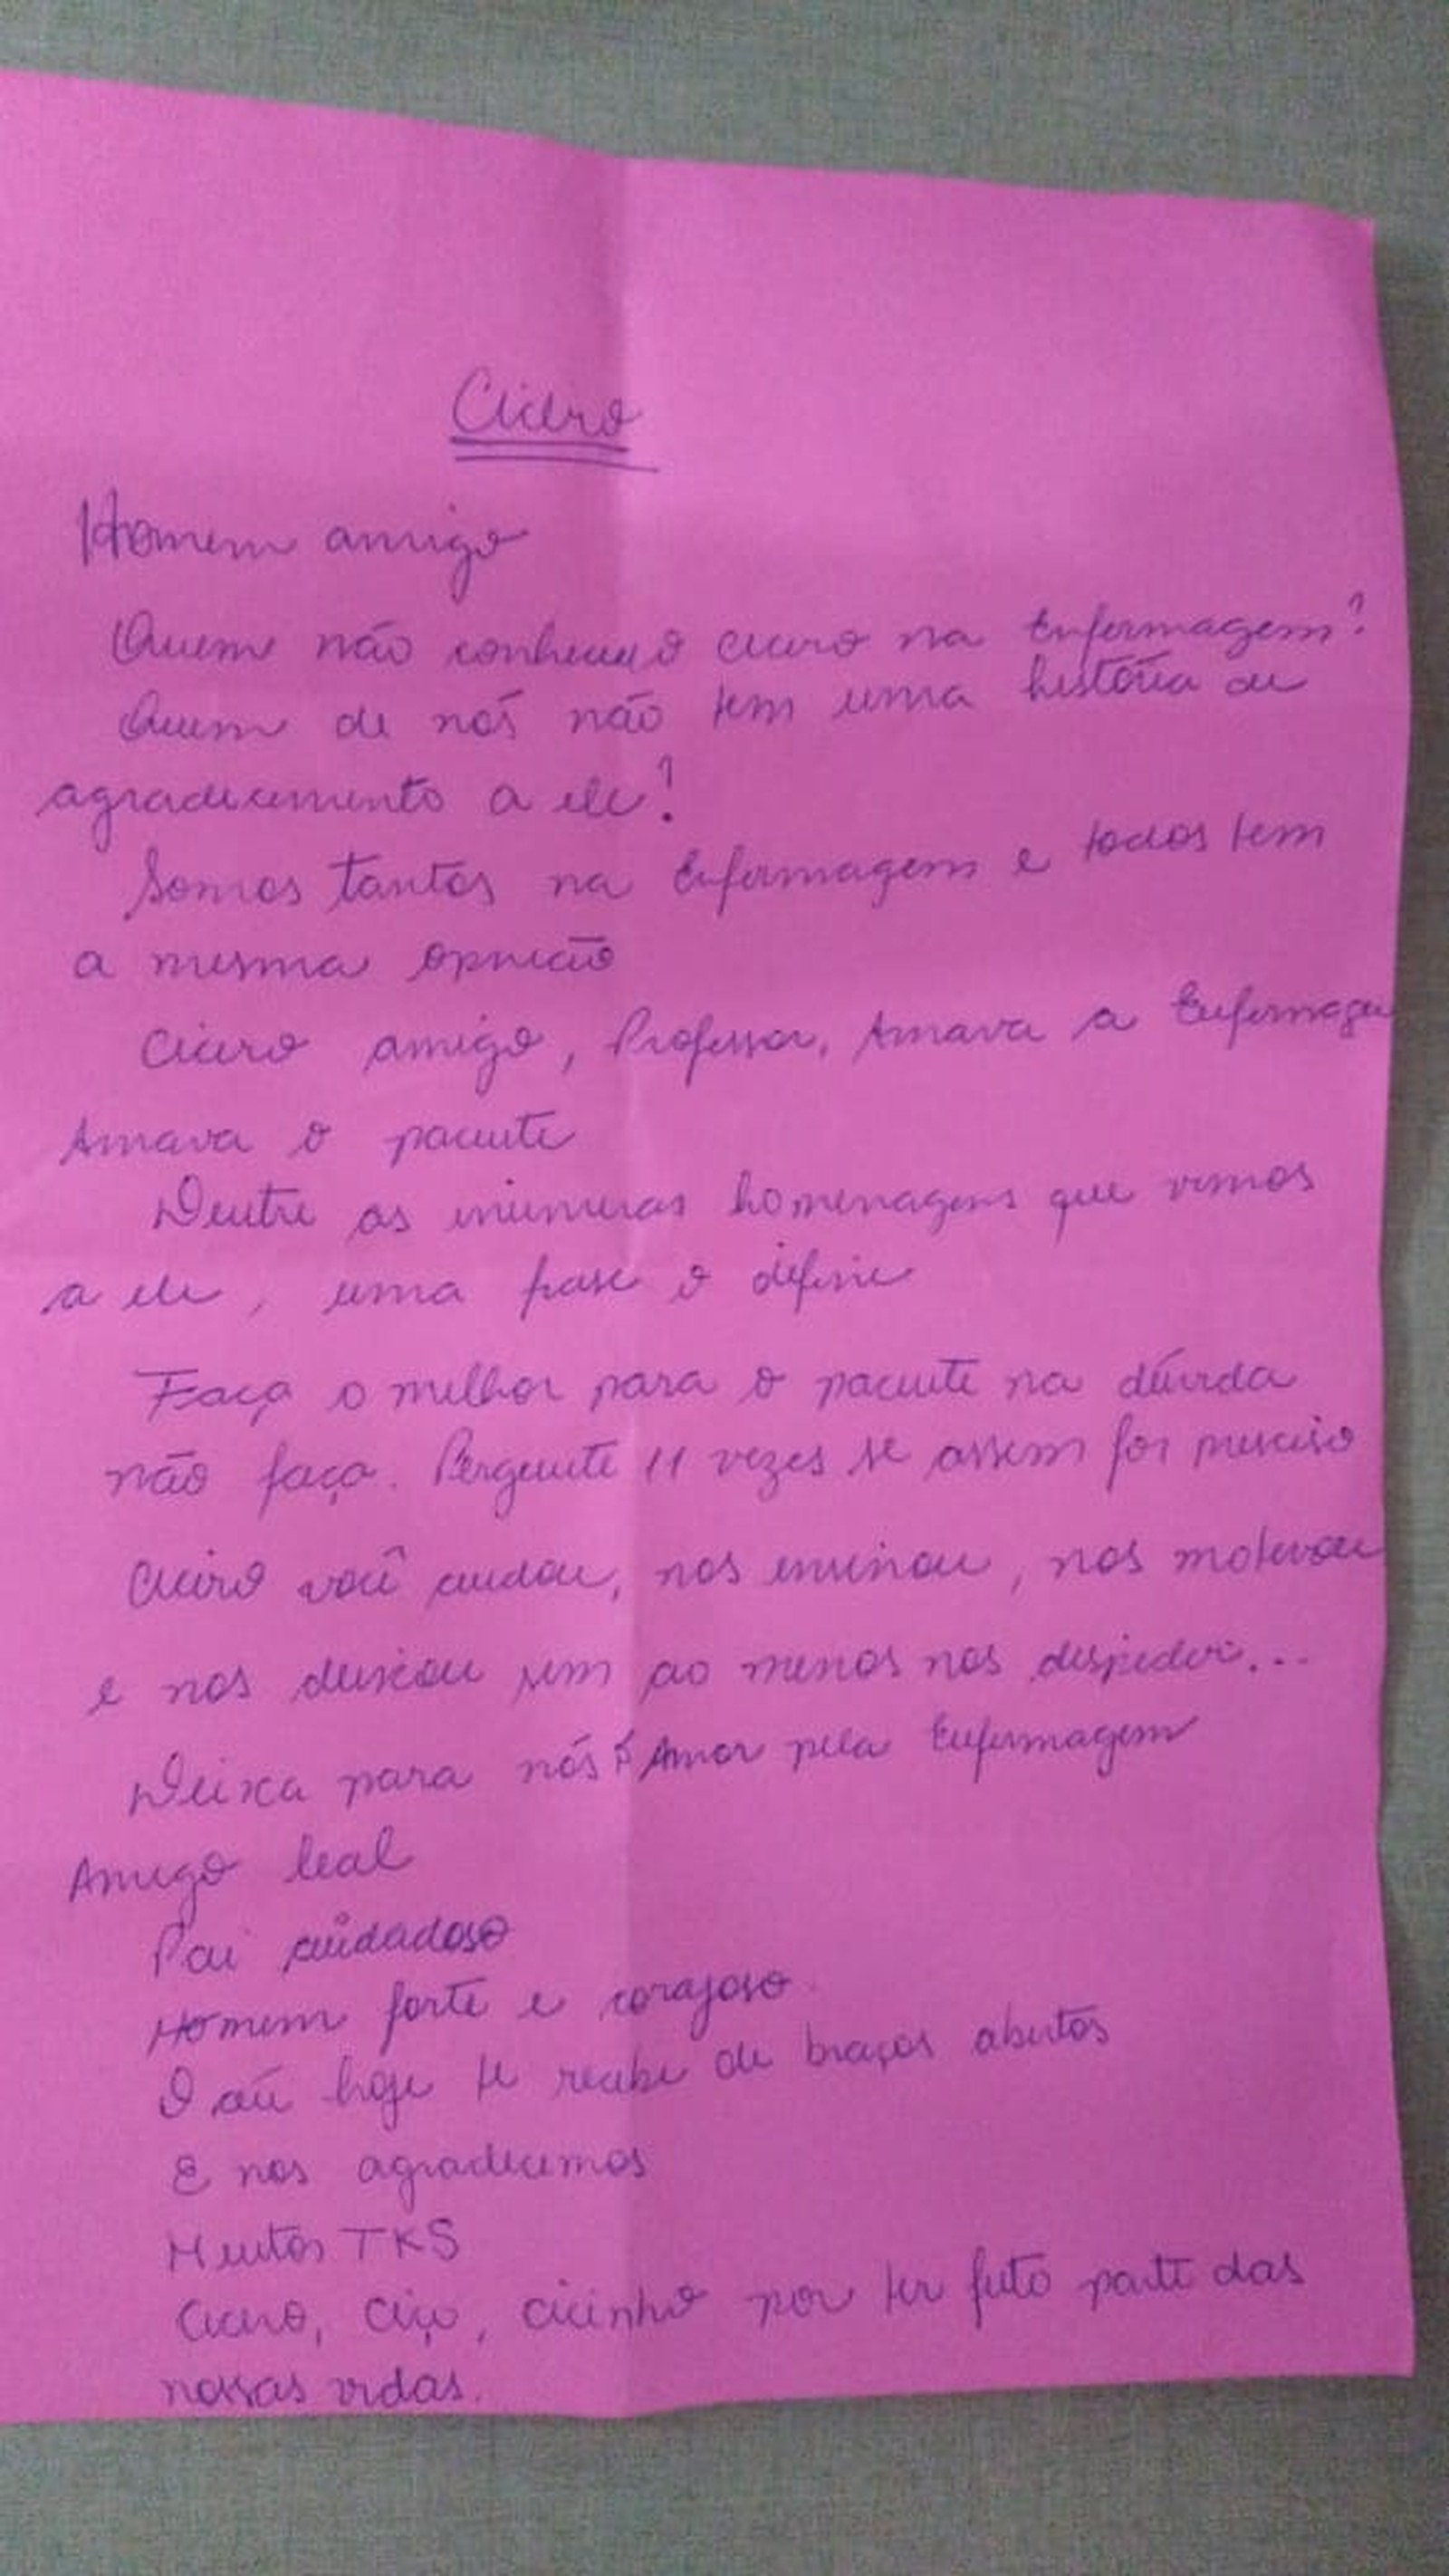 Cicero
Homem amigo
Quem não conheceu o Cicero na Enfermagem?
Quem de nós não tem uma história de
agradecimento a ele?
Somos tantos na Enfermagem e todos tem
a mesma opnião
Cicero amigo, Professor, Amava a Enfermagem
Amava o paciente
Dentre as inúmeras homenagens que vimos
a ele, uma frase o define
Faça o melhor para o paciente na dúvida
não faça. Pergunte 11 vezes se assim for preciso
Cicero você cuidou, nos ensinou, nos motivou
e nos deixou sem ao menos nos despedir...
Deixa para nós o Amor pela Enfermagem
Amigo leal
Pai cuidadoso
Homem forte e corajoso.
O céu hoje te recebe de braços abertos
E nos agradecemos
Muitos TKS
Cicero, Ciço, cicinho por ter feito parte das
nossas vidas.